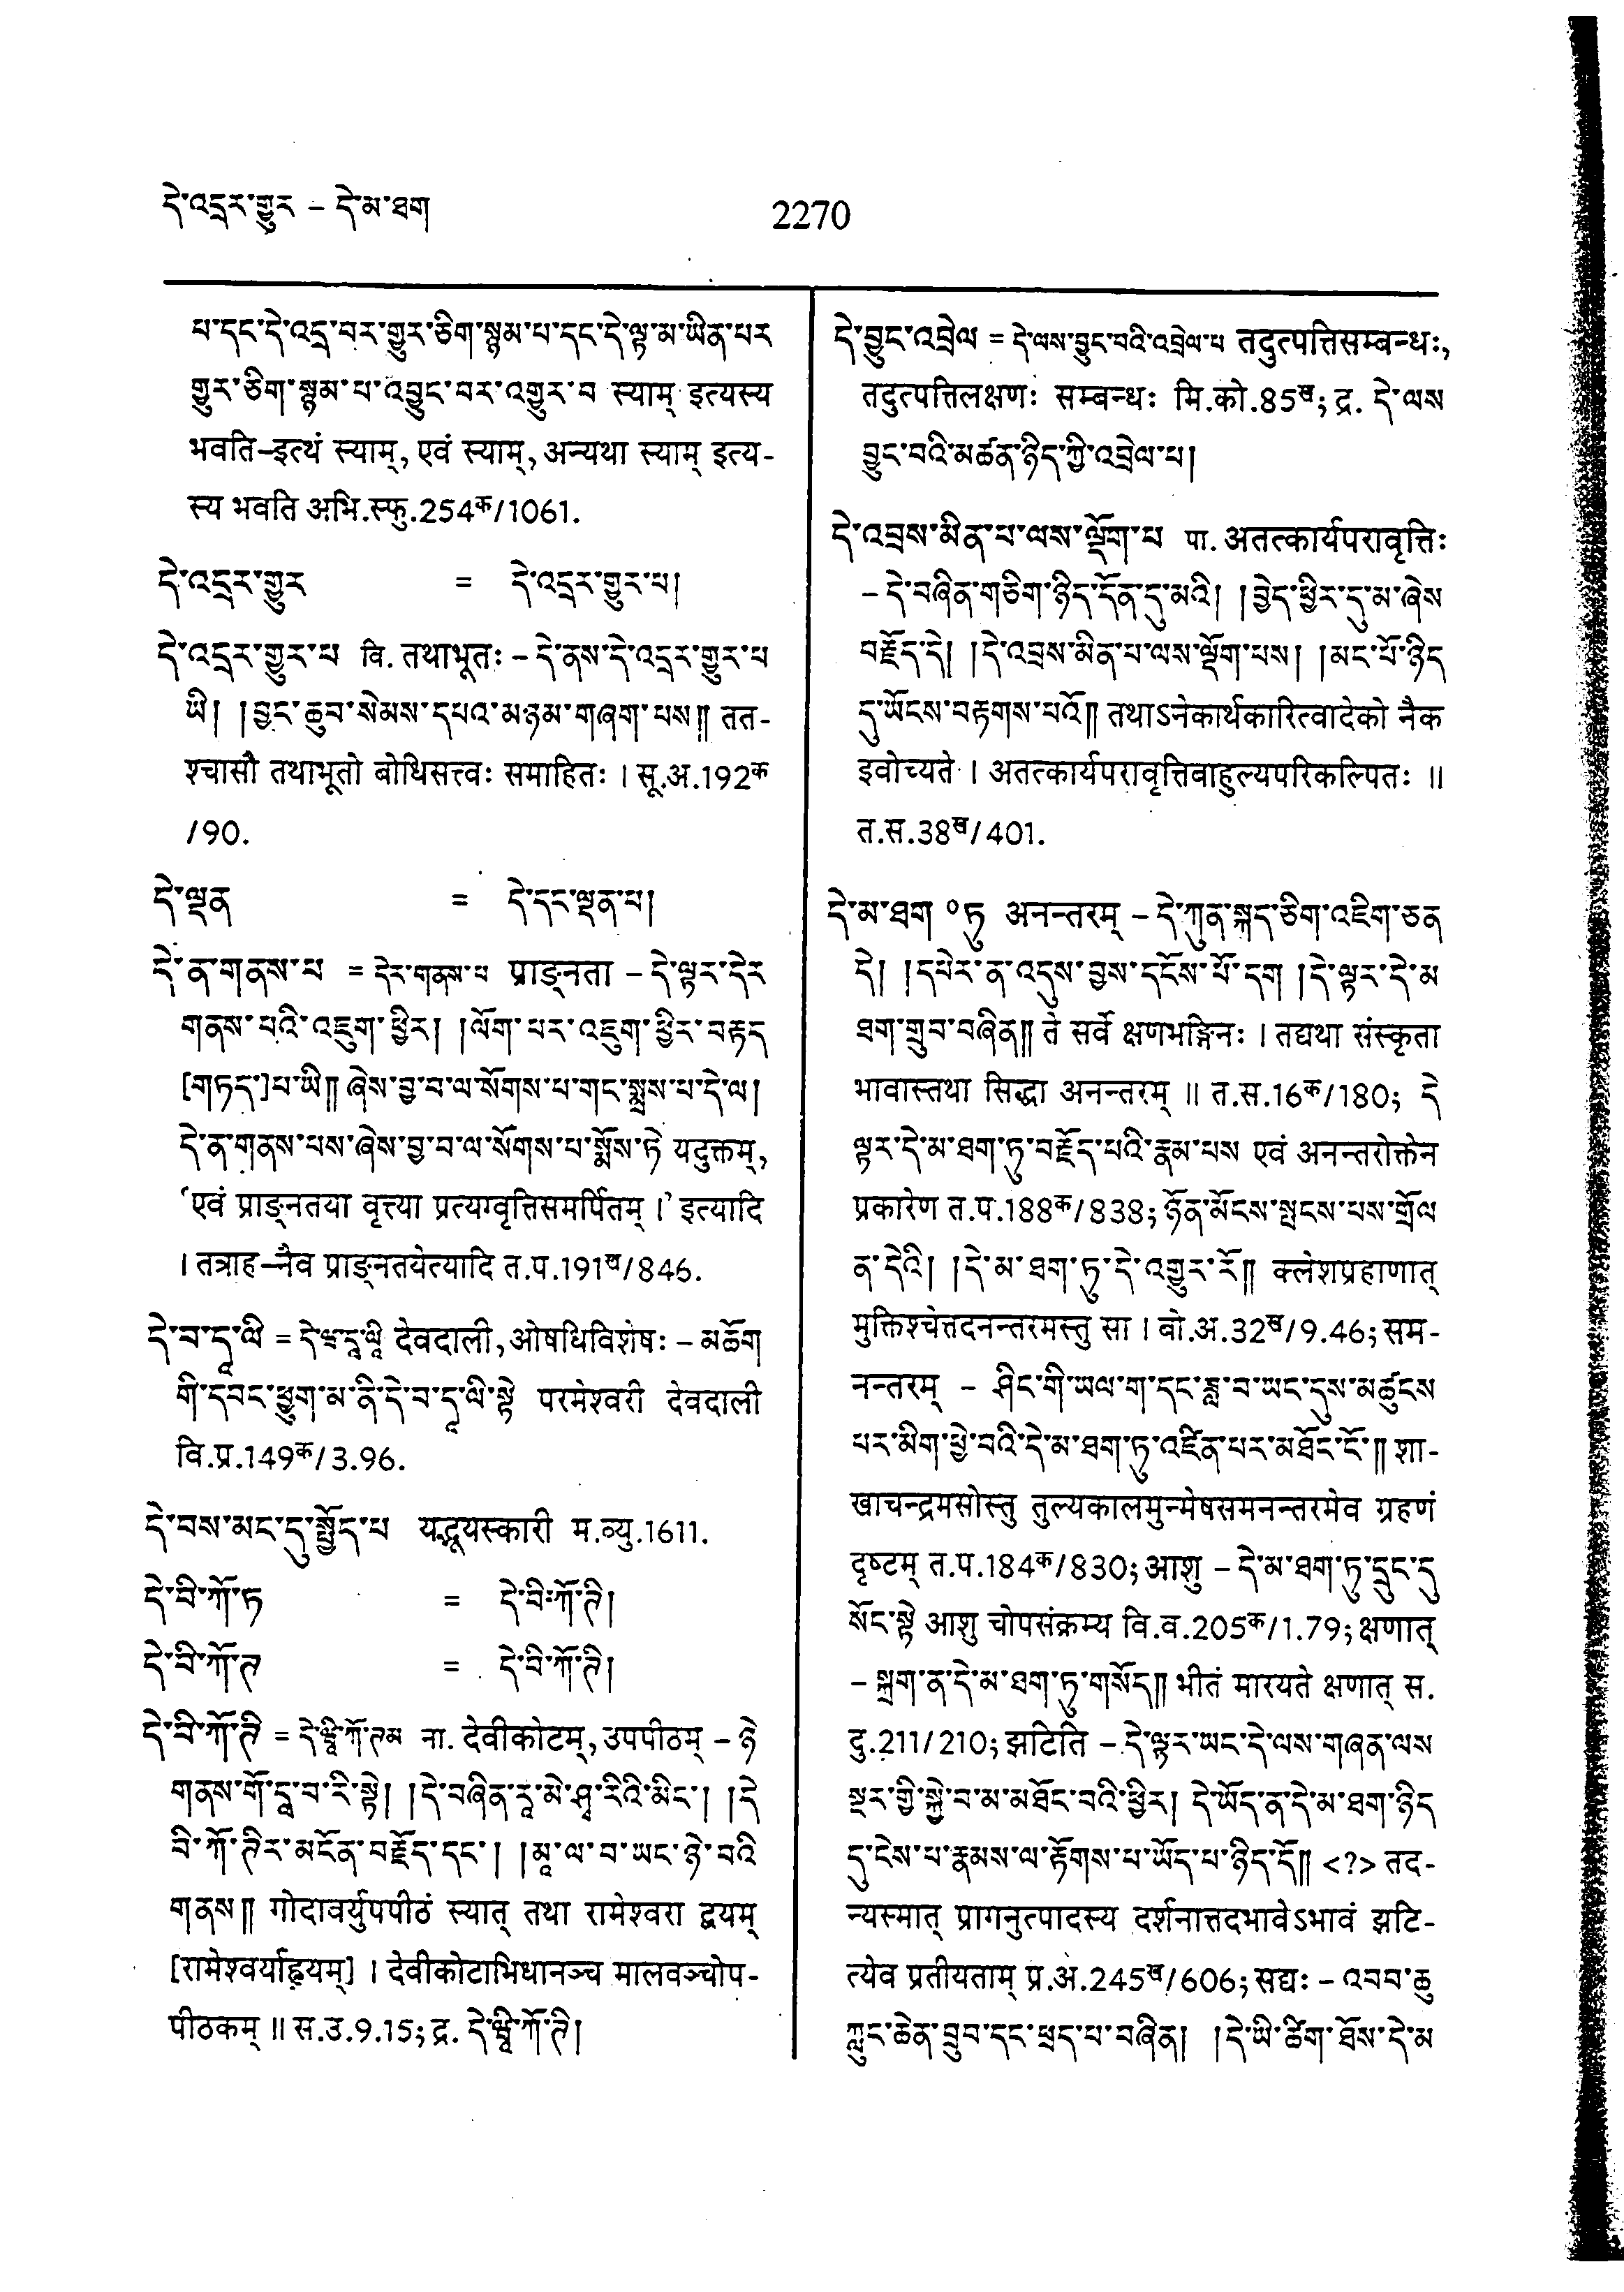 དེ་འདྲར་གྱུར – དེ་མ་ཐག
2270
པ་དང་དེ་འདྲ་བར་གྱུར་ཅིག་སྙམ་པ་དང་དེ་ལྟ་མ་ཡིན་པར
གྱུར་ཅིག་སྙམ་པ་འབྱུང་བར་འགྱུར་བ स्याम् इत्यस्य
भवति–इत्थं स्याम्, एवं स्याम्, अन्यथा स्याम् इत्य-
स्य भवति अभि.स्फु.254क/1061.
དེ་འདྲར་གྱུར = དེ་འདྲར་གྱུར་པ།
དེ་འདྲར་གྱུར་པ वि. तथाभूतः – དེ་ནས་དེ་འདྲར་གྱུར་པ
ཡི། །བྱང་ཆུབ་སེམས་དཔའ་མཉམ་གཞག་པས༎ तत-
श्चासौ तथाभूतो बोधिसत्त्वः समाहितः । सू.अ.192क
/90.
དེ་ལྡན = དེ་དང་ལྡན་པ།
དེ་ན་གནས་པ = དེར་གནས་པ प्राङ्नता – དེ་ལྟར་དེར
གནས་པའི་འཇུག་ཕྱིར། །ལོག་པར་འཇུག་ཕྱིར་བརྟད
[གཏད་]པ་ཡི༎ ཞེས་བྱ་བ་ལ་སོགས་པ་གང་སྨྲས་པ་དེ་ལ།
དེ་ན་གནས་པས་ཞེས་བྱ་བ་ལ་སོགས་པ་སྨོས་ཏེ यदुक्तम्,
‘एवं प्राङ्नतया वृत्त्या प्रत्यग्वृत्तिसमर्पितम् ।’ इत्यादि
। तत्राह–नैव प्राङ्नतयेत्यादि त.प.191ख/846.
དེ་བ་དཱ་ལི = དེ་ཝ་དཱ་ལཱི देवदाली, ओषधिविशेषः – མཆོག
གི་དབང་ཕྱུག་མ་ནི་དེ་བ་དཱ་ལི་སྟེ परमेश्वरी देवदाली
वि.प्र.149क/3.96.
དེ་བས་མང་དུ་སྤྱོད་པ यद्भूयस्कारी म.व्यु.1611.
དེ་བི་ཀོ་ཏ = དེ་བི་ཀོ་ཊི།
དེ་བི་ཀོ་ཊ = དེ་བི་ཀོ་ཊི།
དེ་བི་ཀོ་ཊི = དེ་ཝཱི་ཀོ་ཊམ ना. देवीकोटम्, उपपीठम् – ཉེ
གནས་གོ་དཱ་བ་རི་སྟེ། །དེ་བཞིན་རཱ་མེ་ཤྭ་རིའི་མིང་། །དེ
བི་ཀོ་ཊིར་མངོན་བརྗོད་དང་། །མཱ་ལ་བ་ཡང་ཉེ་བའི
གནས༎ गोदावर्युपपीठं स्यात् तथा रामेश्वरा द्वयम्
[रामेश्वर्याह्वयम्] । देवीकोटाभिधानञ्च मालवञ्चोप-
पीठकम् ॥ स.उ.9.15; द्र. དེ་ཝཱི་ཀོ་ཊི།
དེ་བྱུང་འབྲེལ = དེ་ལས་བྱུང་བའི་འབྲེལ་པ तदुत्पत्तिसम्बन्धः,
तदुत्पत्तिलक्षणः सम्बन्धः मि.को.85ख; द्र. དེ་ལས
བྱུང་བའི་མཚན་ཉིད་ཀྱི་འབྲེལ་པ།
དེ་འབྲས་མིན་པ་ལས་ལྡོག་པ पा. अतत्कार्यपरावृत्तिः
– དེ་བཞིན་གཅིག་ཉིད་དོན་དུ་མའི། །བྱེད་ཕྱིར་དུ་མ་ཞེས
བརྗོད་དེ། །དེ་འབྲས་མིན་པ་ལས་ལྡོག་པས། །མང་པོ་ཉིད
དུ་ཡོངས་བརྟགས་པའོ༎ तथाऽनेकार्थकारित्वादेको नैक
इवोच्यते । अतत्कार्यपरावृत्तिबाहुल्यपरिकल्पितः ॥
त.स.38ख/401.
དེ་མ་ཐག ॰ཏུ अनन्तरम् – དེ་ཀུན་སྐད་ཅིག་འཇིག་ཅན
དེ། །དཔེར་ན་འདུས་བྱས་དངོས་པོ་དག །དེ་ལྟར་དེ་མ
ཐག་གྲུབ་བཞིན༎ ते सर्वे क्षणभङ्गिनः । तद्यथा संस्कृता
भावास्तथा सिद्धा अनन्तरम् ॥ त.स.16क/180; དེ
ལྟར་དེ་མ་ཐག་ཏུ་བརྗོད་པའི་རྣམ་པས एवं अनन्तरोक्तेन
प्रकारेण त.प.188क/838; ཉོན་མོངས་སྤངས་པས་གྲོལ
ན་དེའི། །དེ་མ་ཐག་ཏུ་དེ་འགྱུར་རོ༎ क्लेशप्रहाणात्
मुक्तिश्चेत्तदनन्तरमस्तु सा । बो.अ.32ख/9.46; सम-
नन्तरम् – ཤིང་གི་ཡལ་ག་དང་ཟླ་བ་ཡང་དུས་མཚུངས
པར་མིག་ཕྱེ་བའི་དེ་མ་ཐག་ཏུ་འཛིན་པར་མཐོང་ངོ་༎ शा-
खाचन्द्रमसोस्तु तुल्यकालमुन्मेषसमनन्तरमेव ग्रहणं
दृष्टम् त.प.184क/830; आशु – དེ་མ་ཐག་ཏུ་དྲུང་དུ
སོང་སྟེ आशु चोपसंक्रम्य वि.व.205क/1.79; क्षणात्
– སྐྲག་ན་དེ་མ་ཐག་ཏུ་གསོད༎ भीतं मारयते क्षणात् स.
दु.211/210; झटिति – དེ་ལྟར་ཡང་དེ་ལས་གཞན་ལས
སྔར་གྱི་སྐྱེ་བ་མ་མཐོང་བའི་ཕྱིར། དེ་ཡོད་ན་དེ་མ་ཐག་ཉིད
དུ་ངེས་པ་རྣམས་ལ་རྟོགས་པ་ཡོད་པ་ཉིད་དོ༎ <?> तद-
न्यस्मात् प्रागनुत्पादस्य दर्शनात्तदभावेऽभावं झटि-
त्येव प्रतीयताम् प्र.अ.245ख/606; सद्यः – འབབ་ཆུ
ཀླུང་ཆེན་བྲུབ་དང་ཕྲད་པ་བཞིན། །དེ་ཡི་ཚིག་ཐོས་དེ་མ